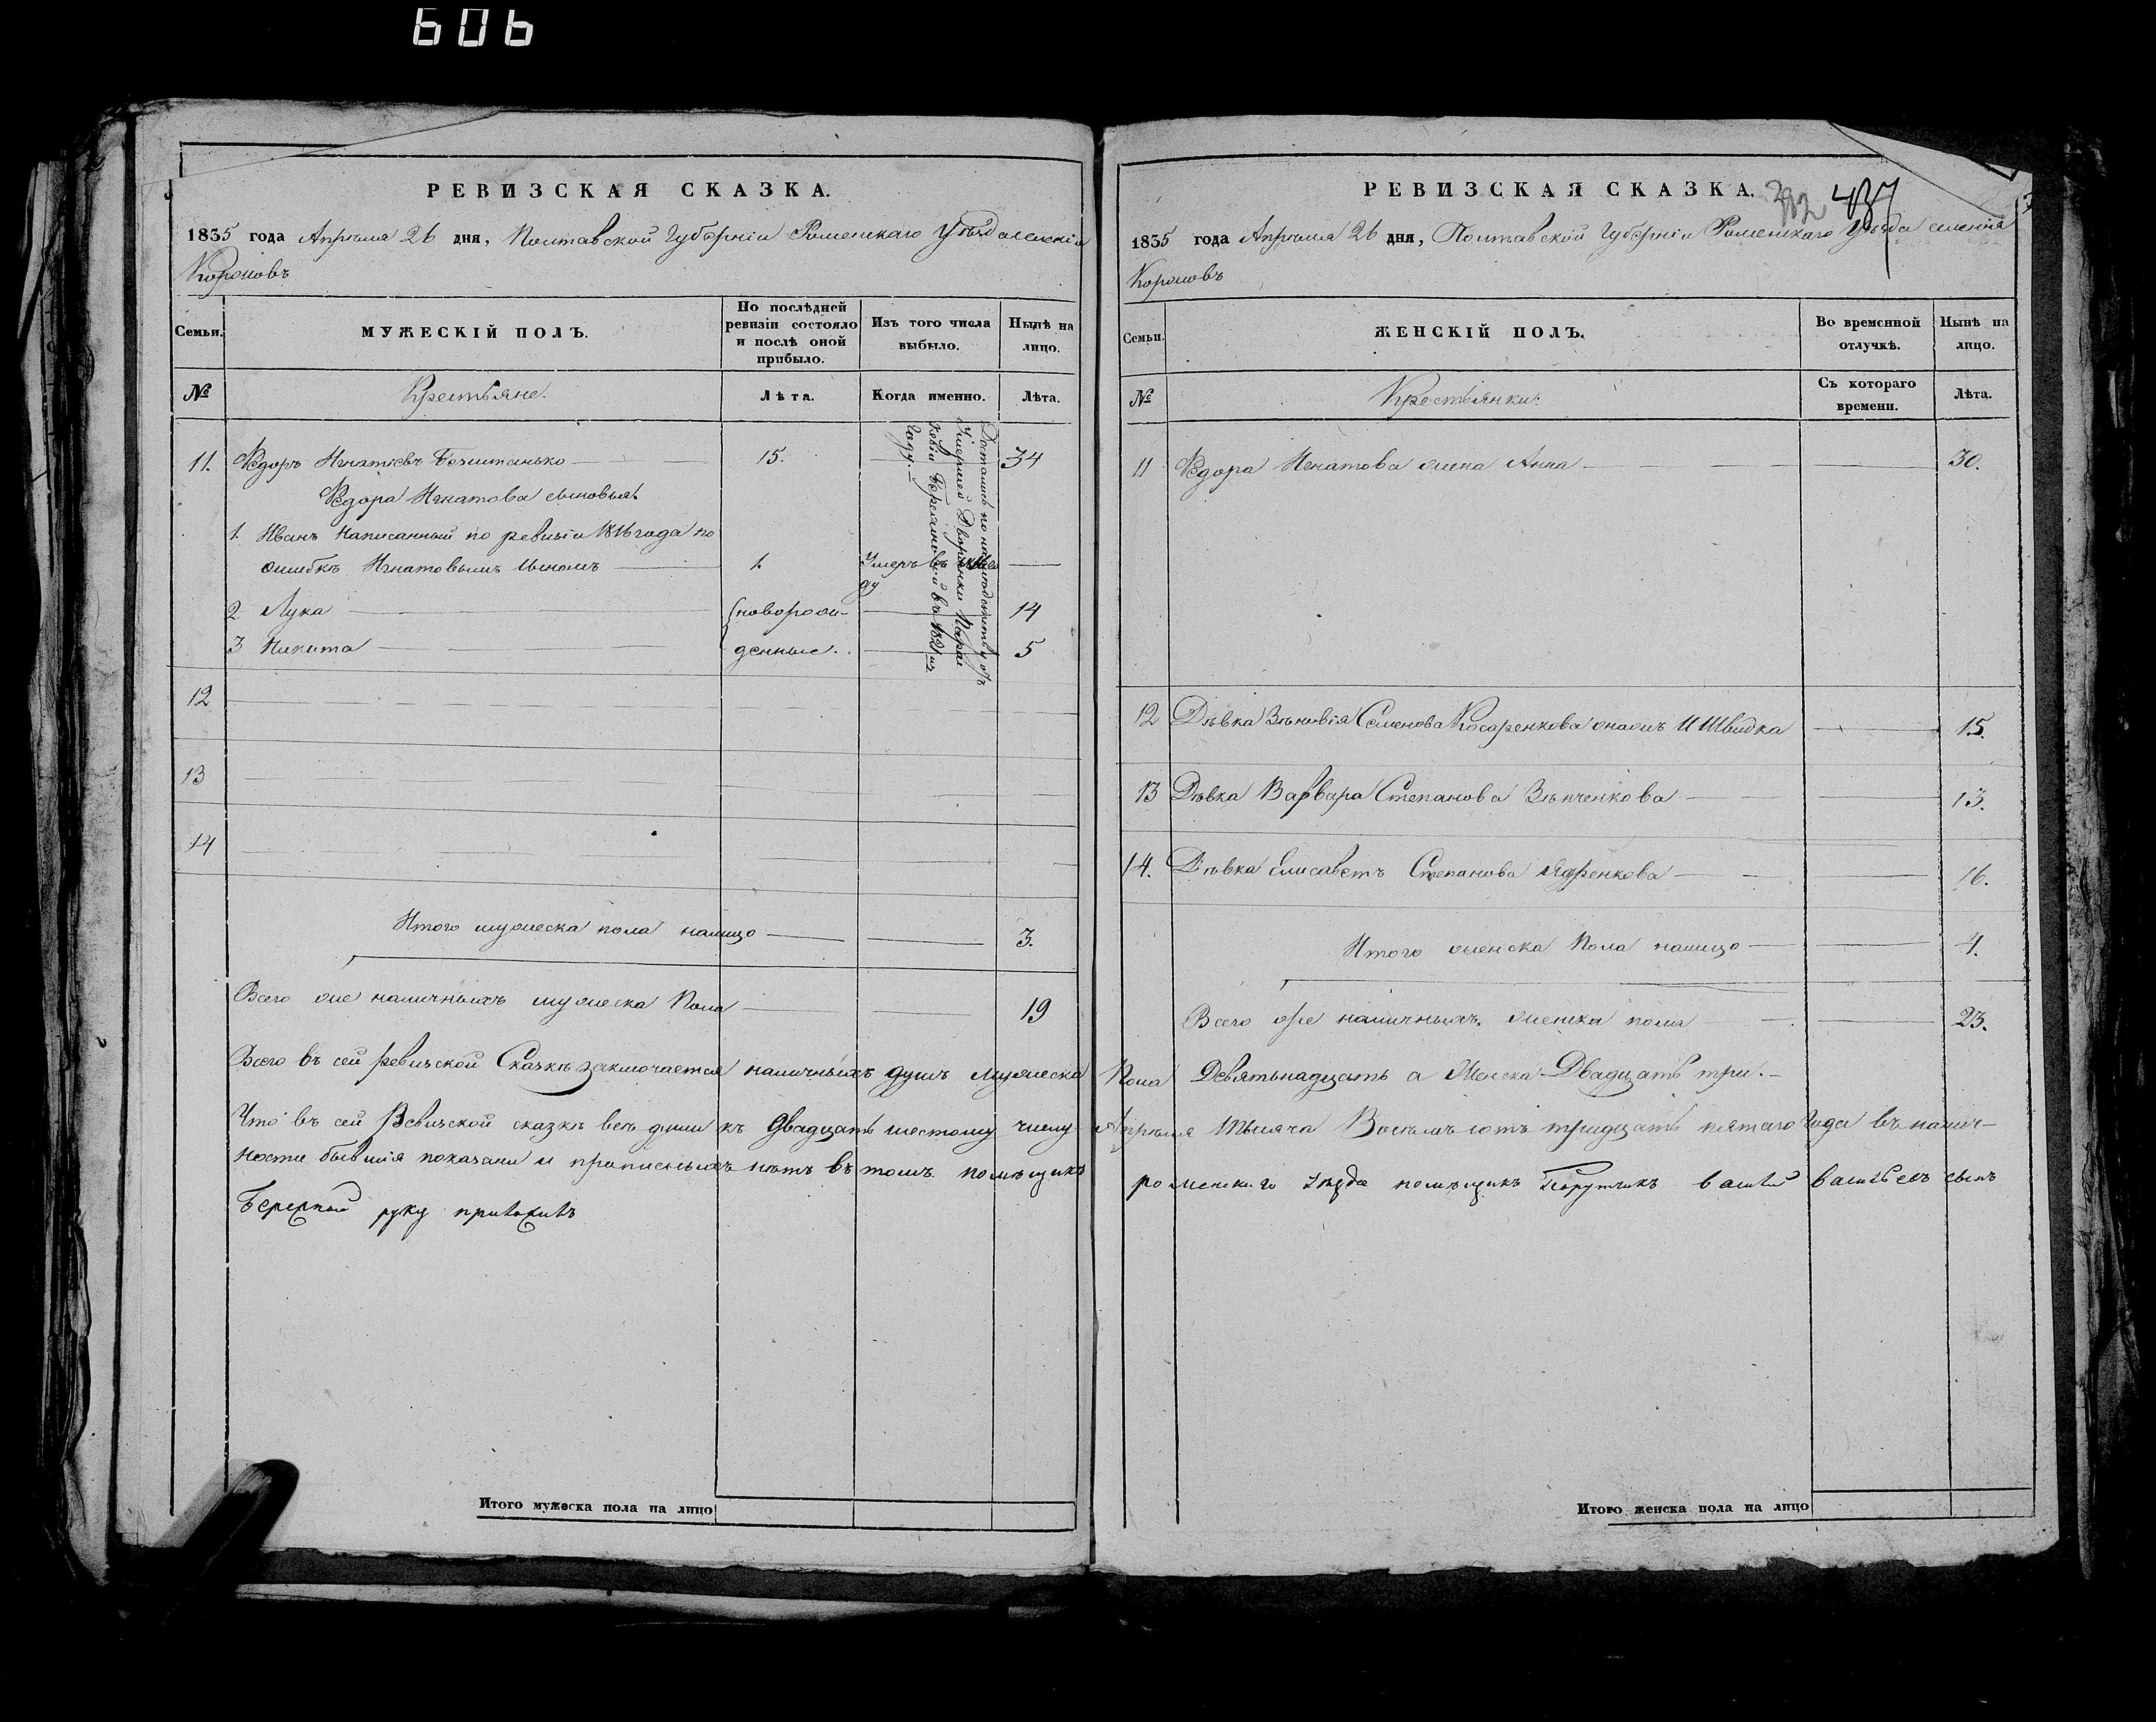 606
РЕВИЗСКАЯ СКАЗКА.
1835 года Апрѣля 26 дня, Полтавской Губерніи Роменскаго Уѣзда селенія
Короповъ
Семьи.
МУЖЕСКІЙ ПОЛЪ.
По послѣдней ревизіи состояло и послѣ оной прибыло.
Изъ того числа выбыло.
Нынѣ на лицо.
№
Крестьяне.
Лѣта.
Когда именно.
Лѣта.
11. Ѳедоръ Игнатіевъ 15. 34
Ѳедора Игнатова сыновья.
1. Иванъ написанный по ревизіи 1816 года по
ошибкѣ Игнатовымъ сыномъ 1. Умеръ въ
ду
2 Лука новорож- 14
3 Никита денные. 5
Достались по наслѣдству отъ
Умершей Дворянки Парас
ковіи въ 1821 м
году.
12
13
14
Итого мужеска пола налицо 3.
Всего же наличныхъ мужеска пола 19
Всего въ сей ревизской Сказкѣ заключается наличныхъ душъ мужеска
Что въ сей Ревизской сказкѣ всѣ души къ двадцать шестому числу
ности бывшія показаны и прописныхъ нѣтъ въ томъ помѣщикъ
руку приложилъ
Итого мужеска пола на лицо
РЕВИЗСКАЯ СКАЗКА.
382 437
1835 года Апрѣля 26 дня, Полтавской Губерніи Роменскаго Уѣзда селенія
Короповъ
Семьи.
ЖЕНСКІЙ ПОЛЪ.
Во временной отлучкѣ.
Нынѣ на лицо.
№
Крестьянки.
Съ котораго времени.
Лѣта.
11 Ѳедора Игнатова жена Анна 30.
12 Дѣвка Зѣновія Семенова Косаренкова онажъ И Швидка 15.
13 Дѣвка Варвара Степанова Зѣнченкова 13.
14. Дѣвка Елисаветъ Степанова 16.
Итого женска пола налицо 4.
Всего же наличныхъ женска пола 23.
Пола Девятьнадцать а Женска Двадцать три.
Апрѣля Тысяча Восемьсотъ тридцать пятаго года въ налич-
роменскаго уѣзда помѣщикъ Порутчикъ василій васильевъ сынъ
Итого женска пола на лицо